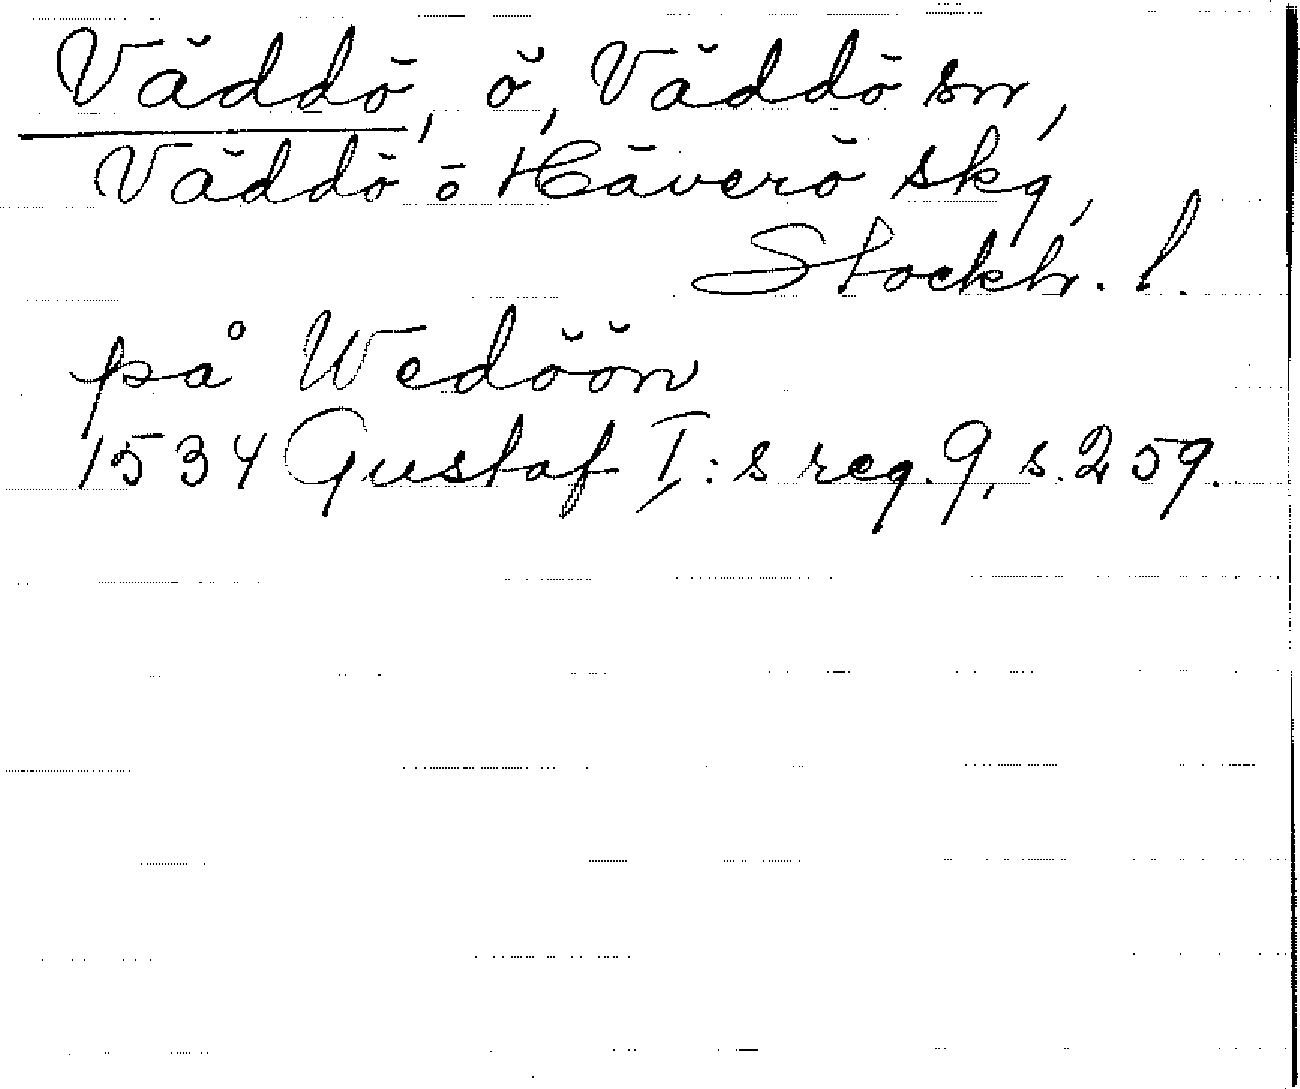 Väddö, ö, Väddö sn,
Väddö o Häverö skg,
Stockh. l.
på Wedöön
1534 Gustaf I:s reg. 9, s. 259.